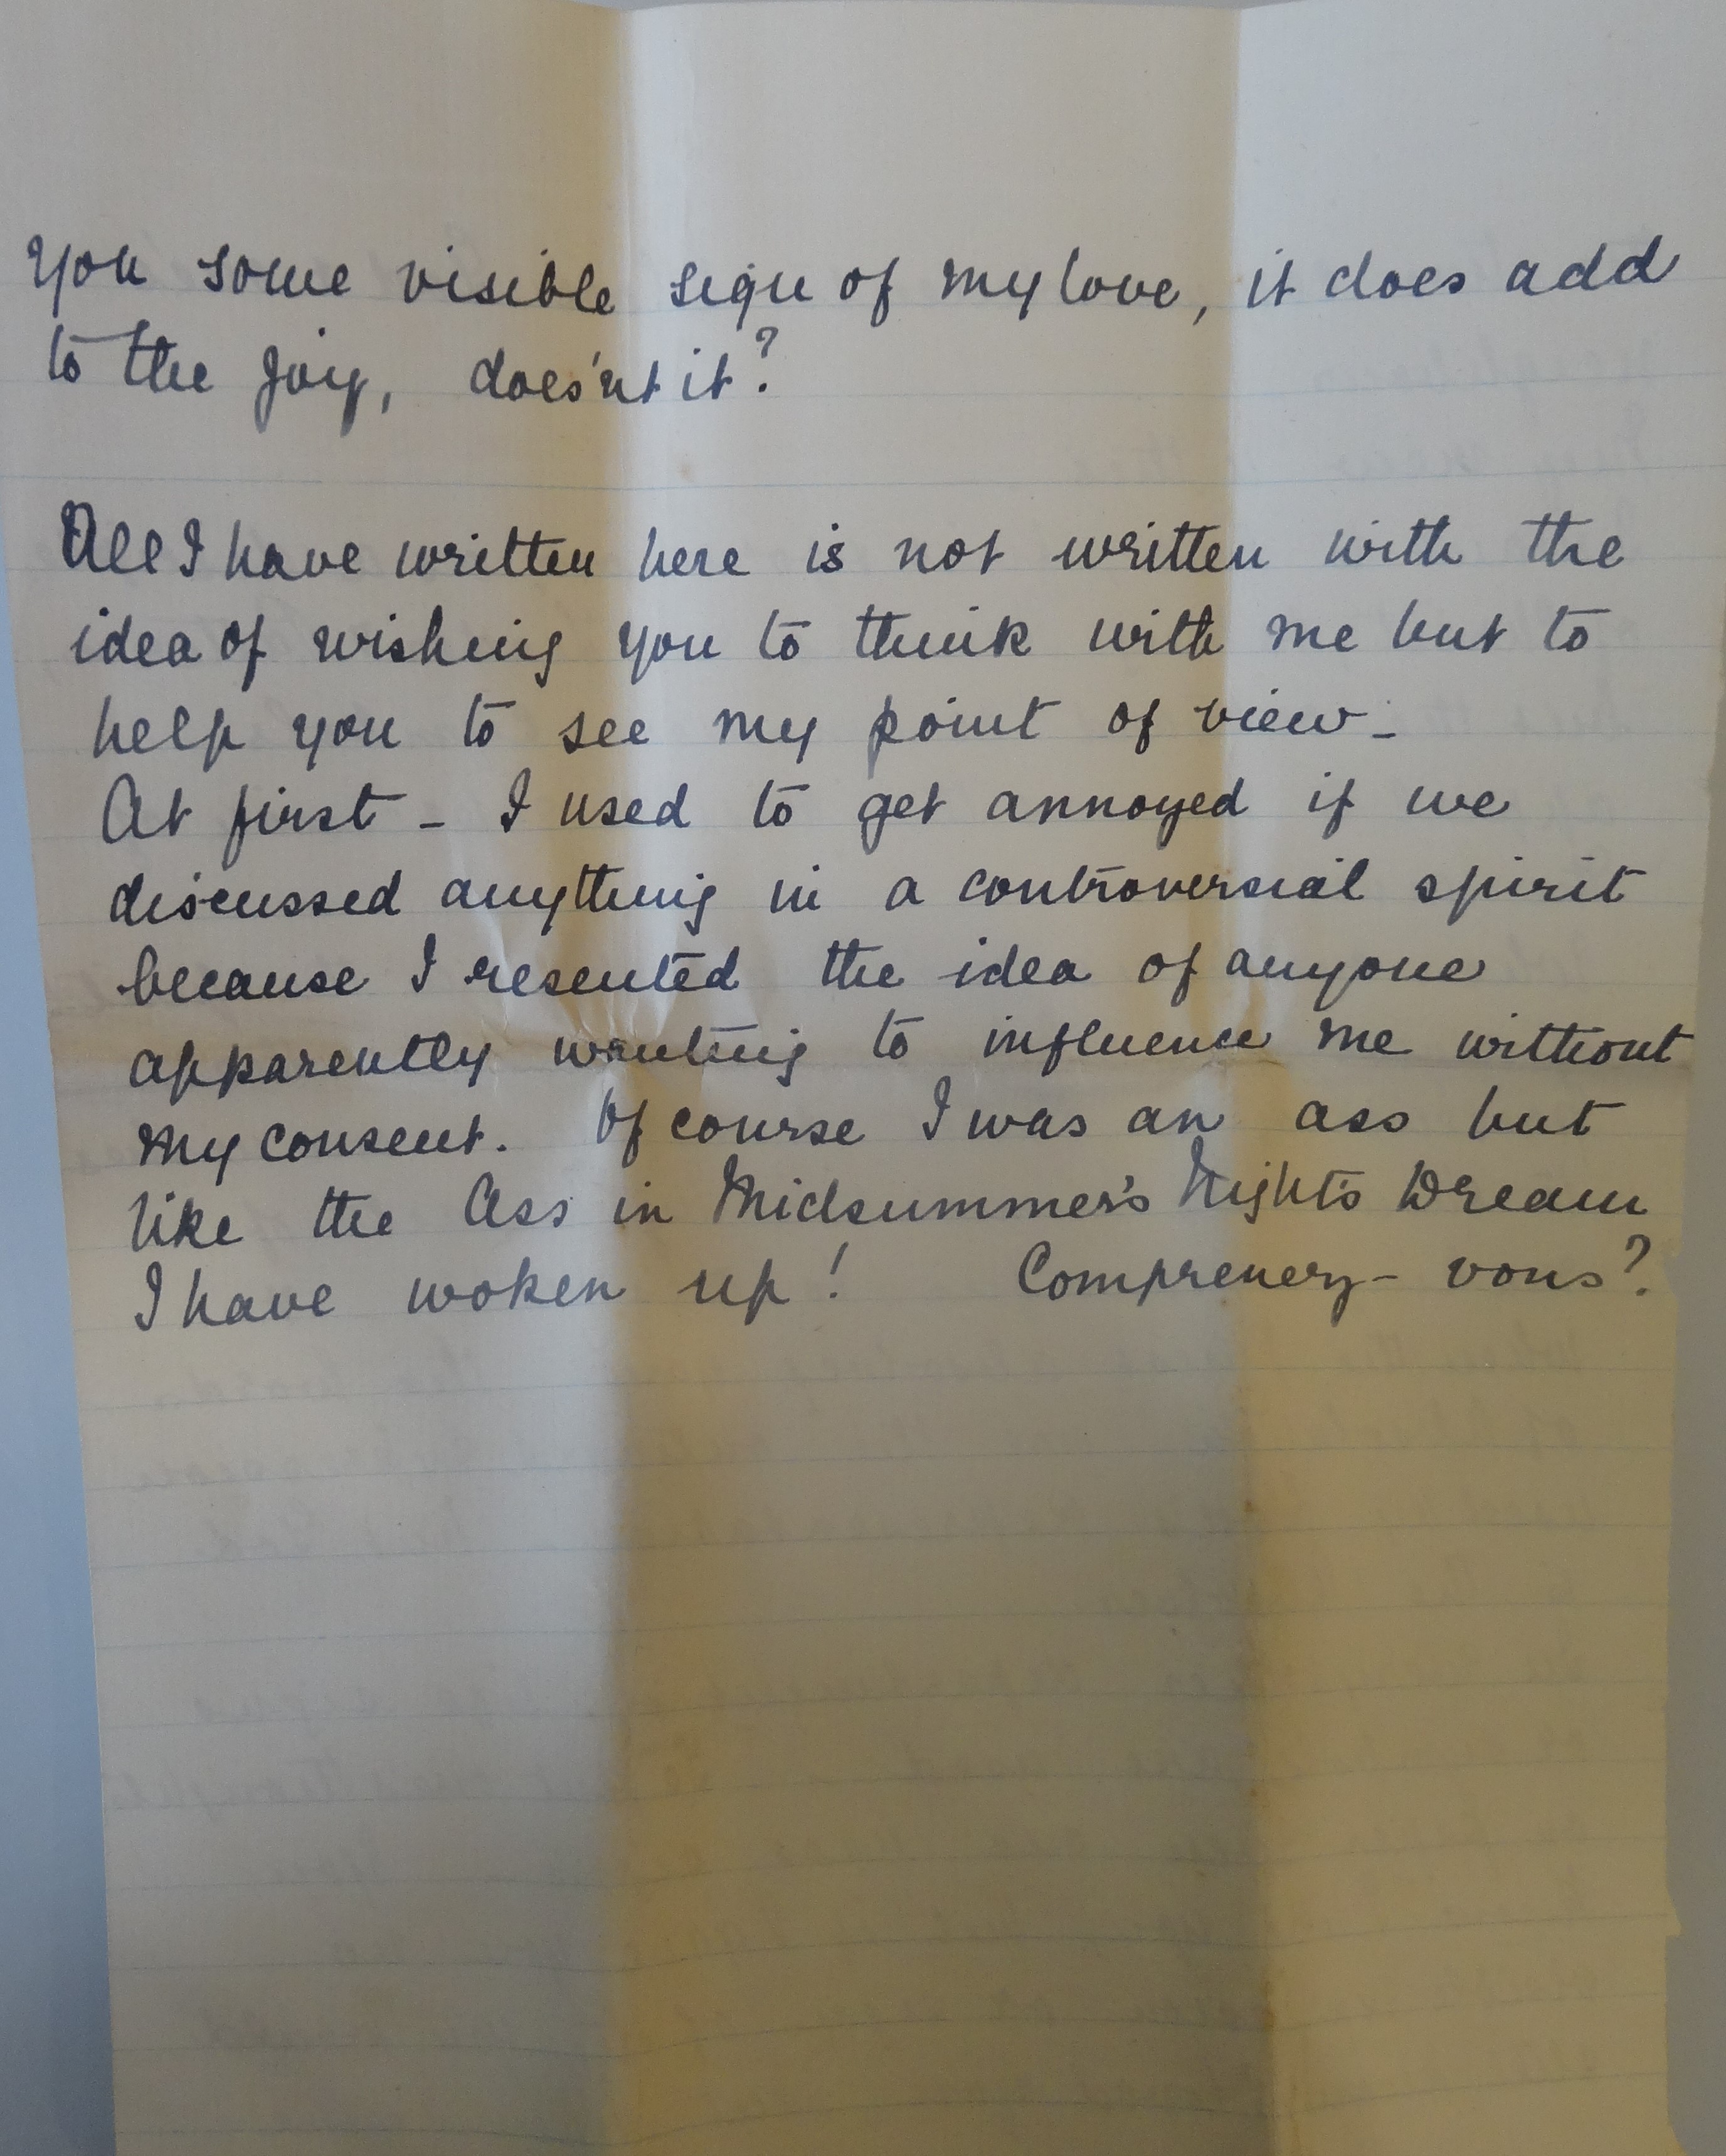 you some visible sign of my love, it does add
to the joy, does'nt it?
All I have written here is not written with the
idea of wishing you to think with me but to
help you to see my point of view –
At first – I used to get annoyed if we
discussed anything in a controversial spirit
because I resented the idea of anyone
apparently wanting to influence me without
my consent. Of course I was an ass but
like the Ass in Midsummer's Night's Dream
I have woken up! Comprenez-vous?